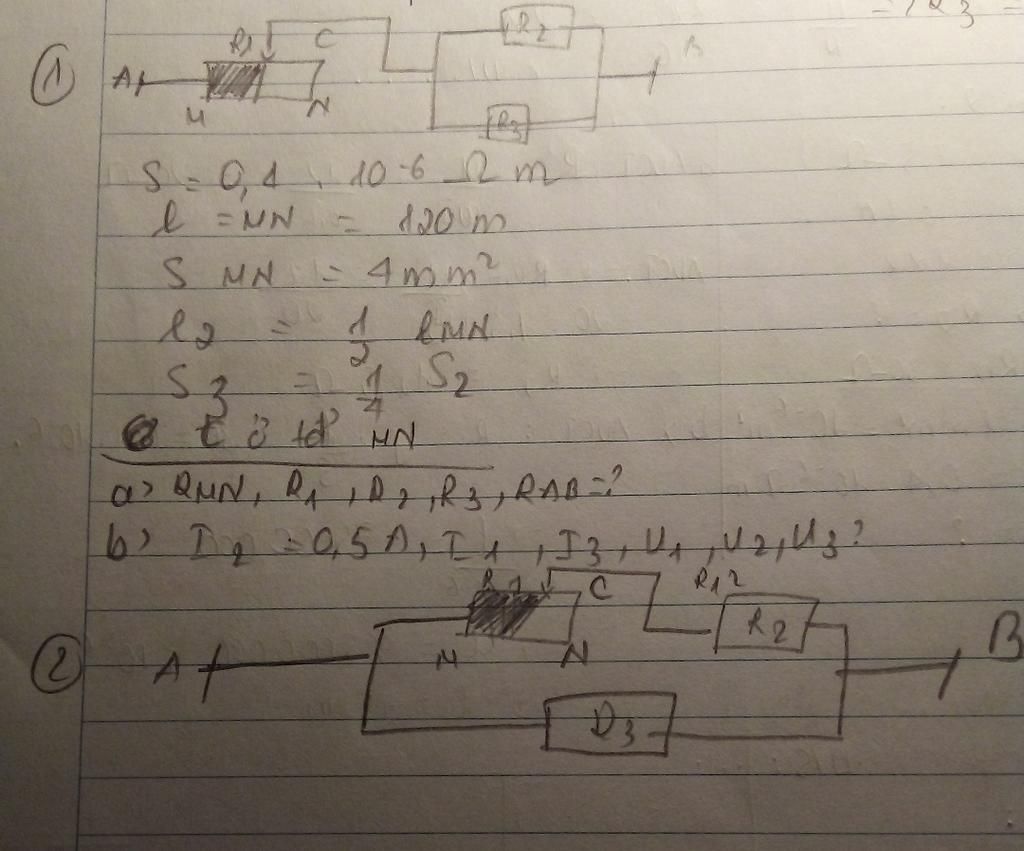 = / R3 =
1
R1 C R2
A B
M N R3
S = 0,1 . 10-6 Ω m
l = MN = 120 m
S MN = 4mm²
l2 = 1/2 lMN
S3 = 1/4 S2
C ở tđ MN
a> RMN, R1, R2, R3, RAB=?
b> I2 = 0,5A, I1, I3, U1, U2, U3?
C R12
2
A R2 B
M N